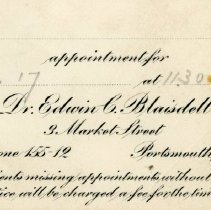 appointment for
17 at 1130
Dr. Edwin C. Blaisdell
3. Market Street
one 155-12 Portsmouth
ents missing appointments without
ice will be charged a fee for the tim